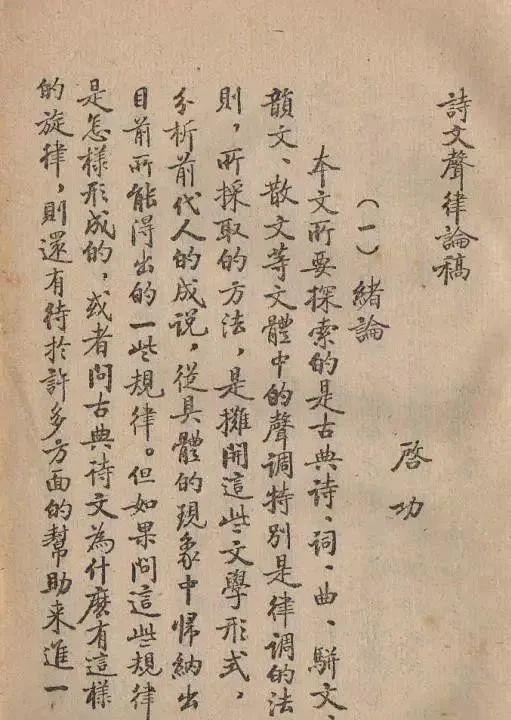 詩文聲律論稿
啓功
(一)緒論
本文所要探索的是古典詩、詞、曲、駢文、
韻文、散文等文體中的聲調特別是律調的法
則,所採取的方法,是攤開這些文學形式,
分析前代人的成説,從具體的現象中歸納出
目前所能得出的一些規律。但如果問這些規律
是怎樣形成的,或者問古典詩文為什麽有這樣
的旋律,則還有待於許多方面的幫助来進一